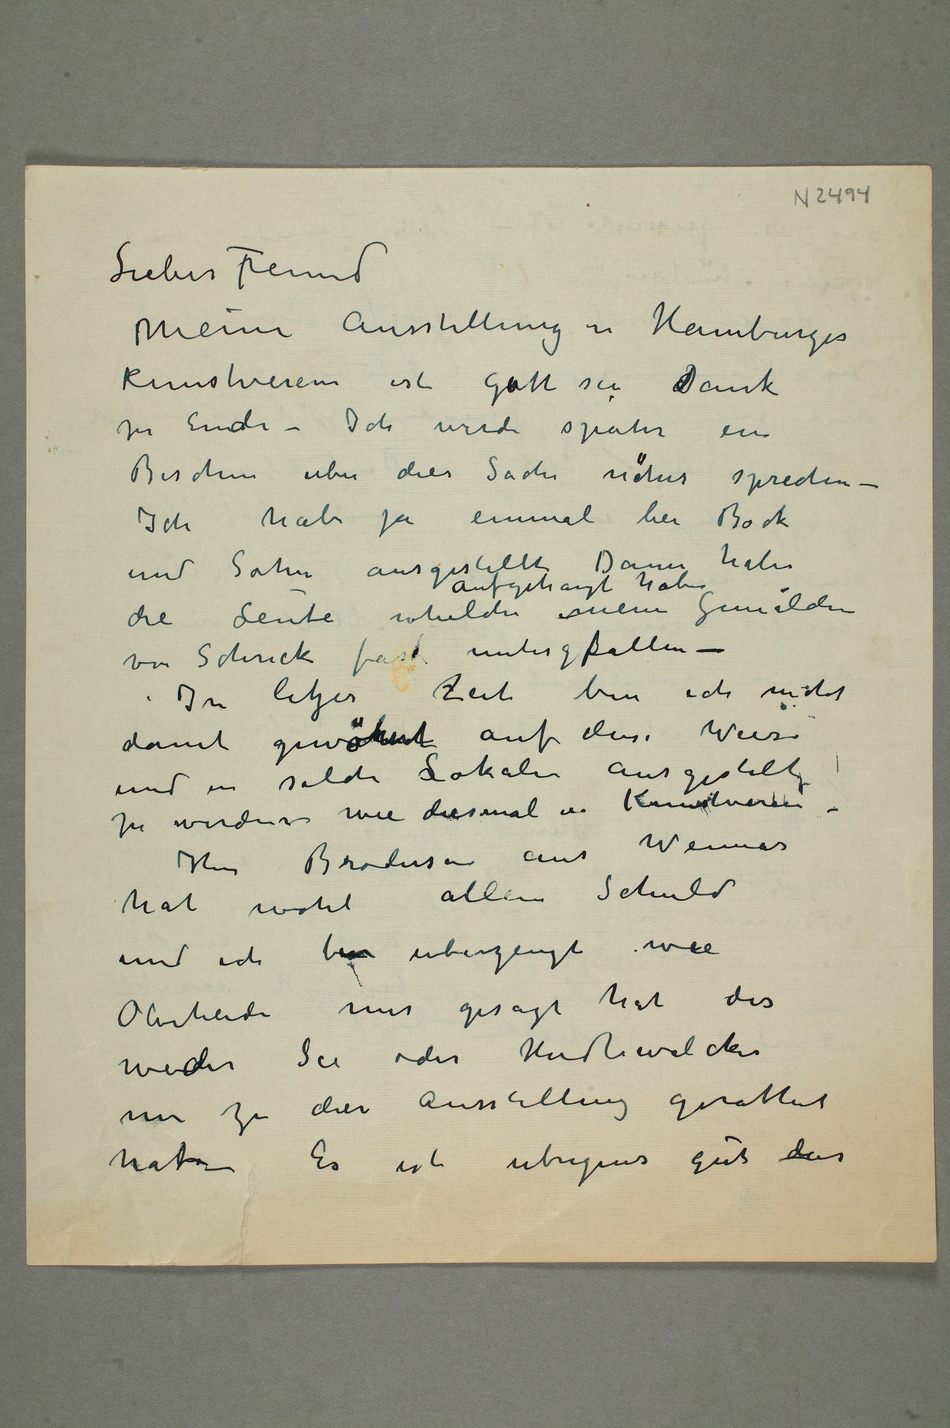 N 2494
Lieber Freund
Meine Ausstellung in Hamburger
Kunstverein ist Gott sei Dank
zu Ende – Ich werde später ein
Bischen uber dies Sache näher sprechen –
Ich habe ja einmal bei Bock
und Sohn ausgestellt Dann haben
aufgehängt haben
die Leute meine Gemälden
vor Schreck fast untergefallen –
In letzer Zeit bin ich nicht
damit gewöhnt auf diese Weise
und in solche Lokalen ausgestellt
zu werden wie diesmal in Kunstverein –
Herr Brodersen aus Weimar
hat wohl allein Schuld
und ich bin uberzeugt wie
mir gesagt hat das
weder Sie oder Hudtwalcker
mir zu dier Ausstellung gerathet
haben Es ist ubrigens gut das